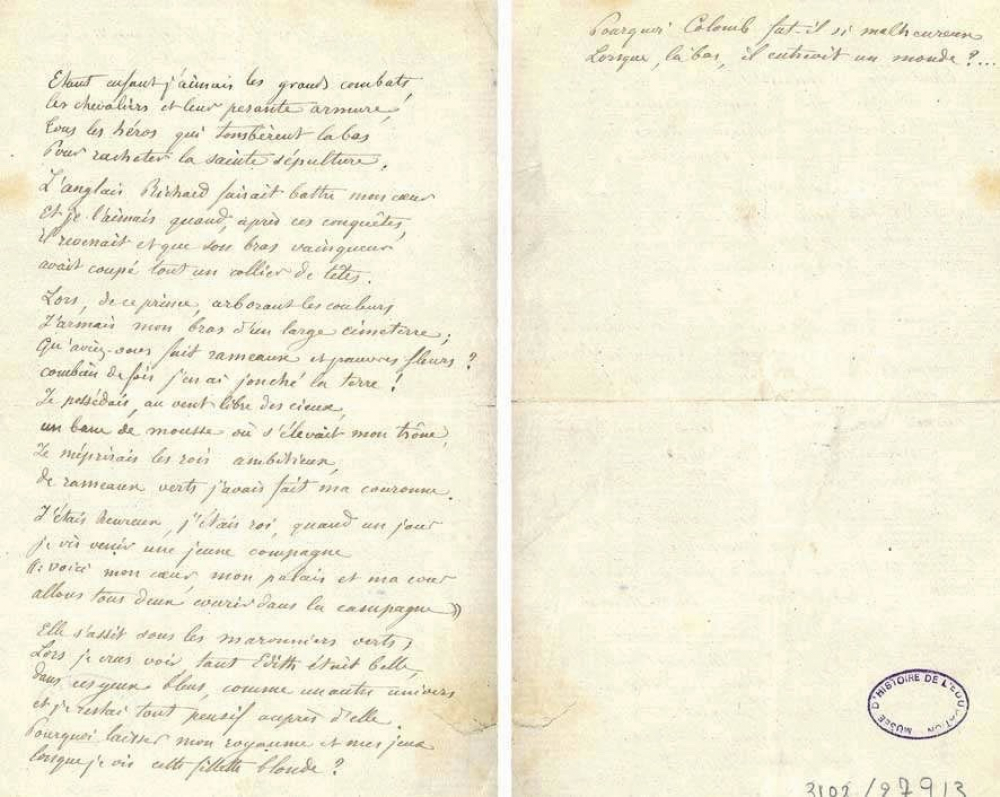 Etant enfant j'aimais les grands combats,
les chevaliers et leur pesante armure,
tous les héros qui tombèrent là bas
Pour racheter la sainte sépulture.
L'anglais Richard faisait battre mon cœur
Et je l'aimais quand, après ces conquêtes,
il revenait et que son bras vainqueur
avait coupé tout un collier de têtes.
Lors, de ce prince, arborant les couleurs
J'armais mon bras d'un large cimeterre ;
Qu'aviez-vous fait rameaux et pauvres fleurs ?
combien de fois j'en ai jonché la terre !
Je possédais, au vent libre des cieux,
un banc de mousse où s'élevait mon trône,
Je méprisais les rois ambitieux,
de rameaux verts j'avais fait ma couronne.
J'étais heureux, j'étais roi, quand un jour
je vis venir une jeune compagne
voici mon cœur, mon palais et ma cour
allons tous deux courir dans la campagne »
Elle s'assit sous les maronniers verts,
Lors je crus voir, tant Edith était belle,
dans ces yeux bleus, comme un autre univers
et je restai tout pensif auprès d'elle.
Pourquoi laisser mon royaume et mes jeux
lorsque je vis cette fillette blonde ?
Pourquoi Colomb fut-il si malheureux
Lorsque, là bas, il entrevit un monde ?...
MUSÉE D'HISTOIRE DE L'EDUCATION
3102 / 27913